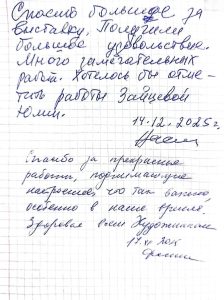 Спасибо большое за
выставку. Получили
большое удовольствие.
Много замечательных
работ. Хотелось бы отме-
тить работы Зайцевой
Юлии.
14.12.2025г.
Спасибо за прекрасные
работы, поднимающие
настроение, что так важно,
особенно в наше время.
Здоровья всем Художникам